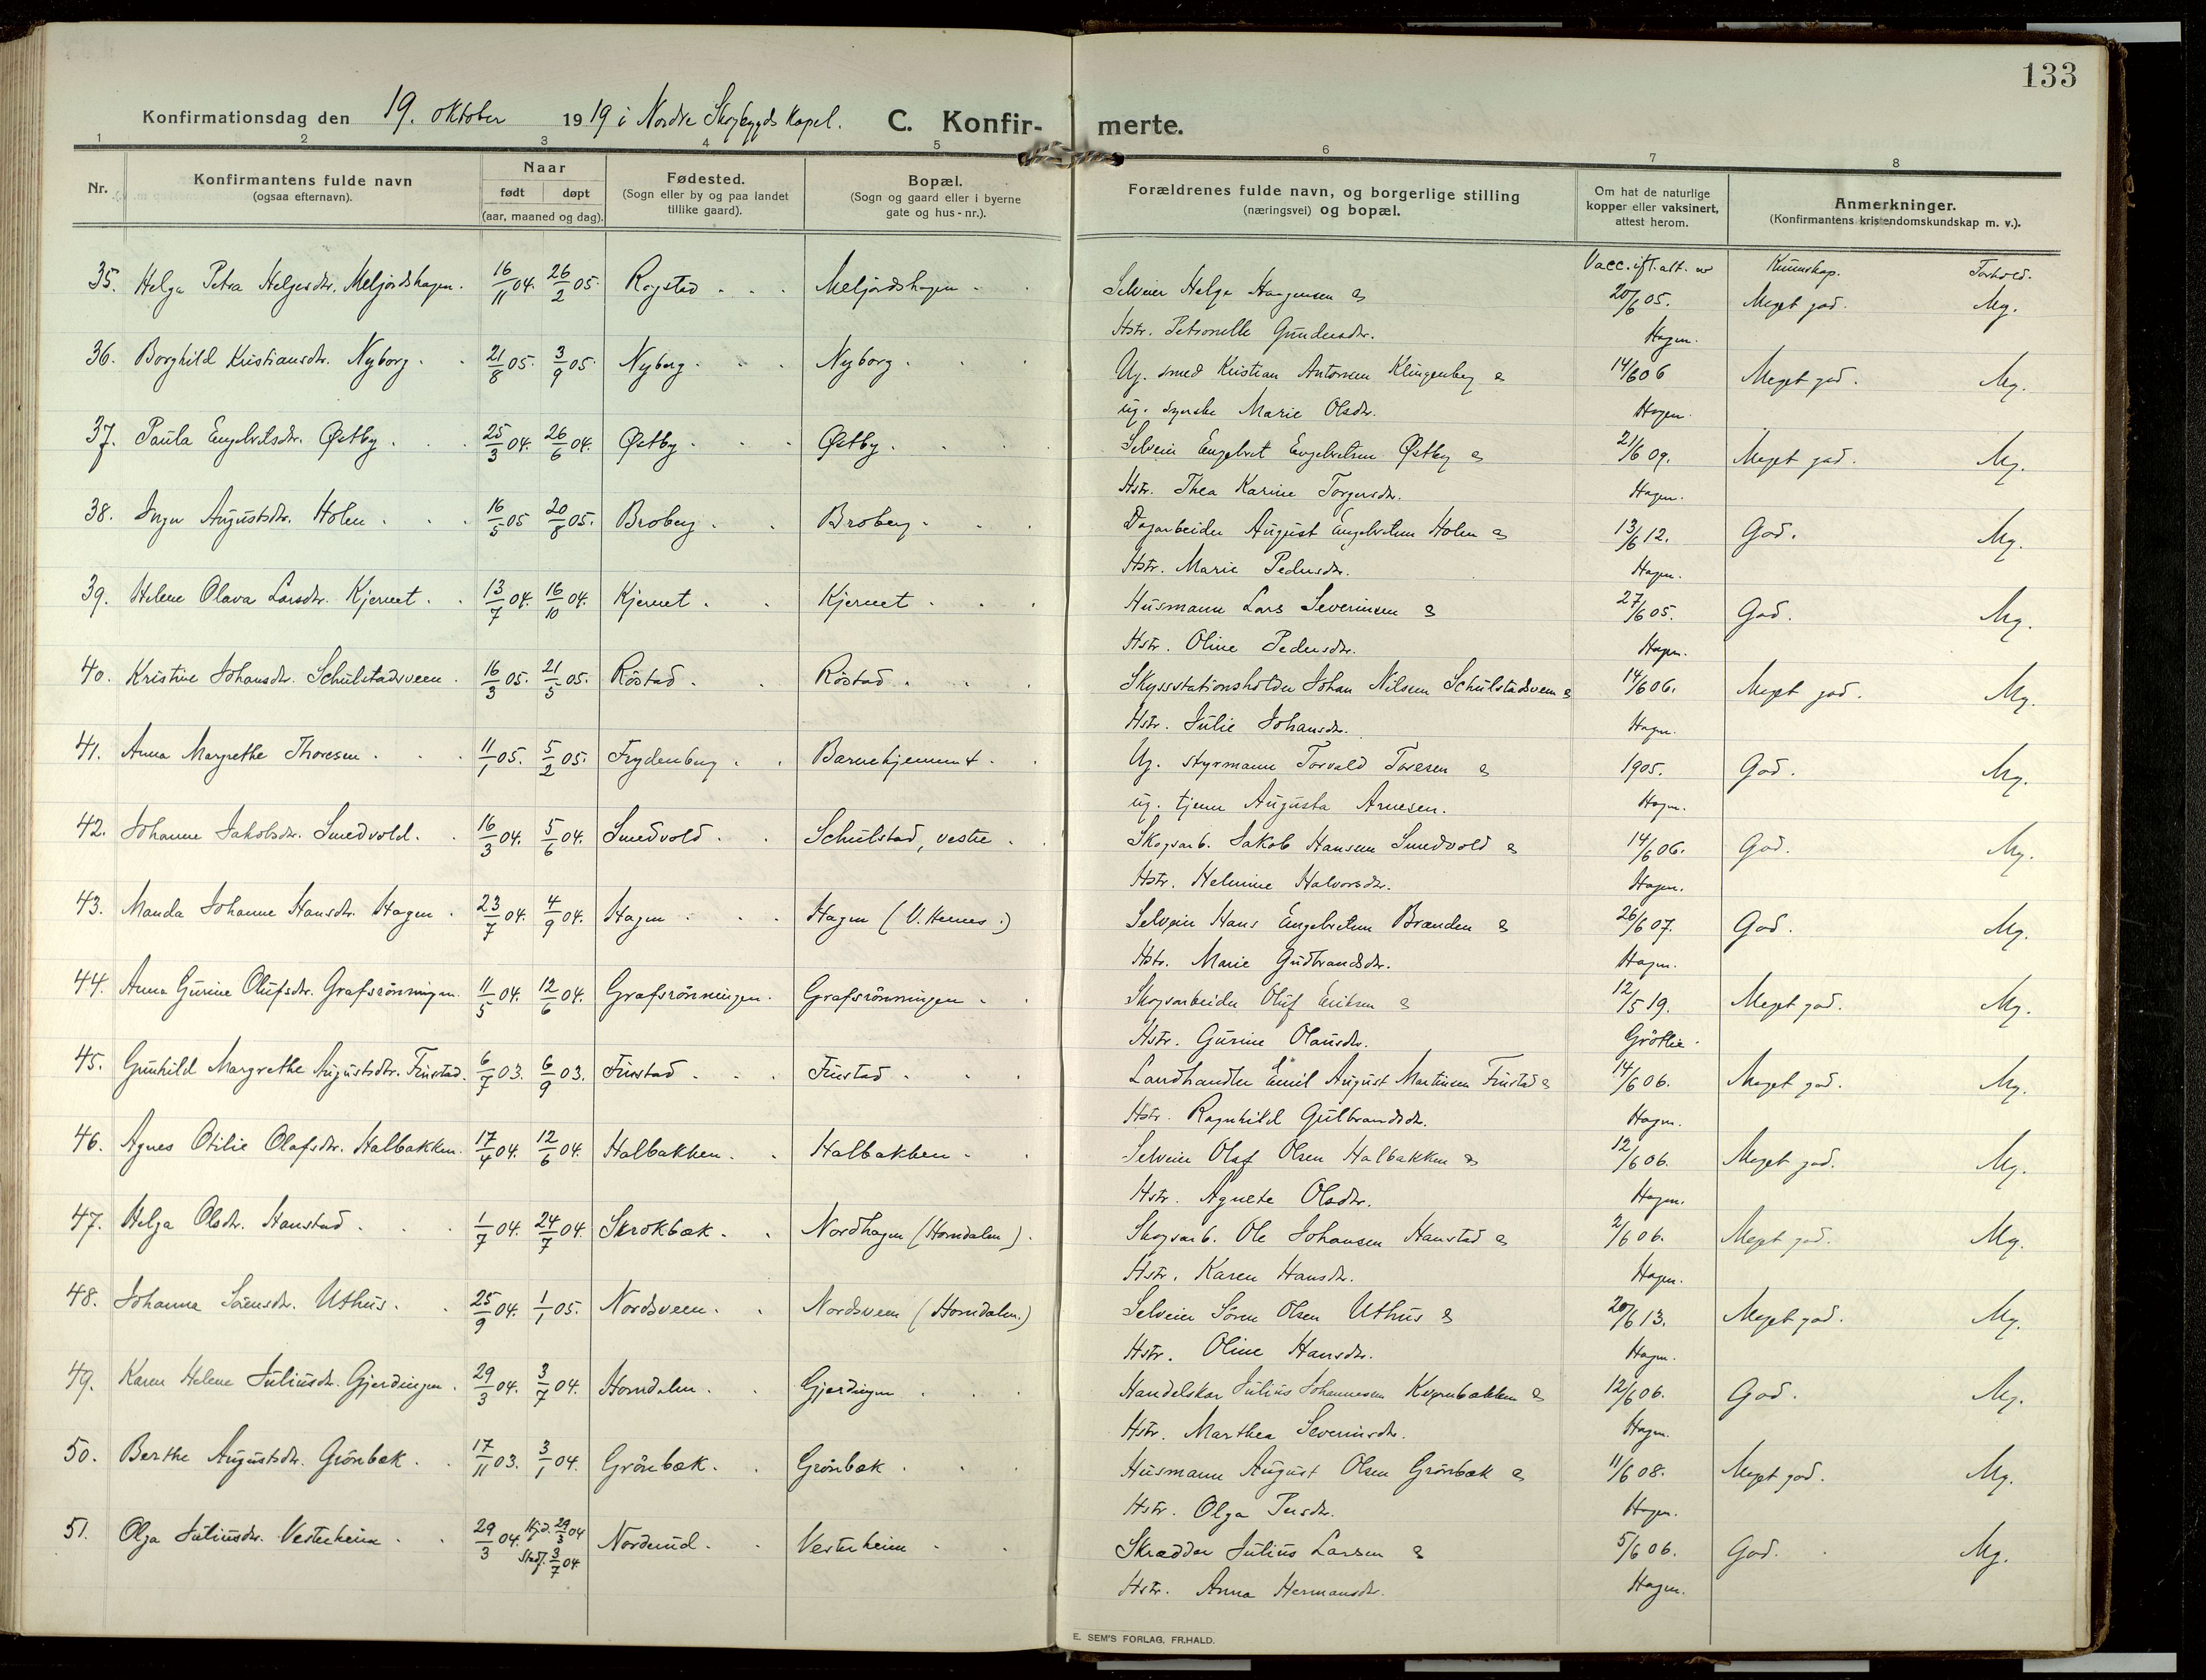 133
Konfirmationsdag den 19. oktober 1919 i Nordre Skogbygds Kapel. C. Konfir- merte.
1 2 3 4 5 6 7 8
Nr. Konfirmantens fulde navn (ogsaa efternavn). Naar født døpt (aar, maaned og dag). Fødested. (Sogn eller by og paa landet tillike gaard). Bopæl. (Sogn og gaard eller i byerne gate og hus-nr.). Forældrenes fulde navn, og borgerlige stilling (næringsvei) og bopæl. Om hat de naturlige kopper eller vaksinert, attest herom. Anmerkninger. (Konfirmantens kristendomskundskap m. v.).
Vacc. ifl. att. av Kunnskap. Forhold.
35. Helga Petra Helgesdtr. Meljordshagen. 16/11 04. 26/2 05. Rogstad Meljordshagen Selveier Helge Haagensen & 20/6 05. Meget god. Mg.
Hstr. Petronelle Gundersdtr. Hagen.
36. Borghild Kristiansdtr. Nyborg. 21/8 05. 3/9 05. Nyborg Nyborg Ug. smed Kristian Antonsen Klingenberg & 14/6 06 Meget god. Mg.
ug. syerske Marie Olsdtr. Hagen.
37. Paula Engebretsdtr. Østby. 25/3 04. 26/6 04. Østby Østby Selveier Engebret Engebretsen Østby & 21/6 09. Meget god. Mg.
Hstr. Thea Karine Torgersdtr. Hagen.
38. Inga Augustsdtr. Holen 16/5 05 20/8 05. Broberg Broberg Dagarbeider August Engebretsen Holen & 13/6 12. God. Mg.
Hstr. Marie Pedersdtr. Hagen.
39. Helene Olava Larsdtr. Kjernet. 13/7 04. 16/10 04. Kjernet Kjernet Husmann Lars Severinsen & 27/6 05. God. Mg.
Hstr. Oline Pedersdtr. Hagen.
40. Kristine Johansdtr. Schulstadsveen. 16/3 05. 21/5 05. Röstad Röstad Skyssstationsholder Johan Nilsen Schulstadsveen & 14/6 06. Meget god. Mg.
Hstr. Julie Johansdtr. Hagen.
41. Anna Margrethe Thoresen 11/1 05. 5/2 05. Frydenberg Barnehjemmet Ug. styrmann Torvald Toresen & 1905. God. Mg.
ug. tjener Augusta Arnesen. Hagen.
42. Johanne Jakobsdtr. Smedvold. 16/3 04. 5/6 04. Smedvold Schulstad, vestre Skogsarb. Jakob Hansen Smedvold & 14/6 06. God. Mg.
Hstr. Helmine Halvorsdtr. Hagen.
43. Manda Johanne Hansdtr. Hagen 23/7 04. 4/9 04. Hagen Hagen (V. Hernes.) Selveier Hans Engebretsen Brænden & 26/6 07. God. Mg.
Hstr. Marie Gudbrandsdtr. Hagen.
44. Anna Gurine Olufsdtr. Grafsrönningen. 11/5 04. 12/6 04. Grafsrönningen. Grafsrönningen Skogsarbeider Oluf Eriksen & 12/5 19. Meget god. Mg.
Hstr. Gurine Olausdtr. Gröttie.
45. Gunhild Margrethe Augustsdtr. Finstad. 6/7 03. 6/9 03. Finstad Finstad Landhandler Emil August Martinsen Finstad & 14/6 06. Meget god. Mg.
Hstr. Ragnhild Gulbrandsdtr. Hagen.
46. Agnes Otilie Olafsdtr. Halbakken. 17/4 04. 12/6 04. Halbakken. Halbakken Selveier Olaf Olsen Halbakken & 12/6 06. Meget god. Mg.
Hstr. Agnete Olsdtr. Hagen.
47. Helga Olsdtr. Hanstad 1/7 04. 24/7 04. Skrokbæk. Nordhagen (Horndalen). Skogsarb. Ole Johansen Hanstad & 2/6 06. Meget god. Mg.
Hstr. Karen Hansdtr. Hagen.
48. Johanna Sörensdtr. Uthus. 25/9 04. 1/1 05. Nordsveen. Nordsveen (Horndalen.) Selveier Sören Olsen Uthus & 20/6 13. Meget god. Mg.
Hstr. Oline Hansdtr. Hagen.
49. Karen Helene Juliusdtr. Gjerdingen. 29/3 04. 3/7 04. Horndalen. Gjerdingen Handelskar Julius Johannesen Kvernbakken & 12/6 06. God. Mg.
Hstr. Marthea Severinsdtr. Hagen.
50. Berthe Augustsdtr. Grönbæk. 17/11 03. 3/1 04. Grönbæk. Grönbæk Husmann August Olsen Grönbæk & 11/6 08. Meget god. Mg.
Hstr. Olga Persdtr. Hagen.
51. Olga Juliusdtr. Vesterheim 29/3 04. Hjd. 29/3 04 Stadf. 3/7 04 Norderud. Vesterheim Skrædder Julius Larsen & 5/6 06. God. Mg.
Hstr. Anna Hermansdtr. Hagen.
E. SEM'S FORLAG, FR.HALD.